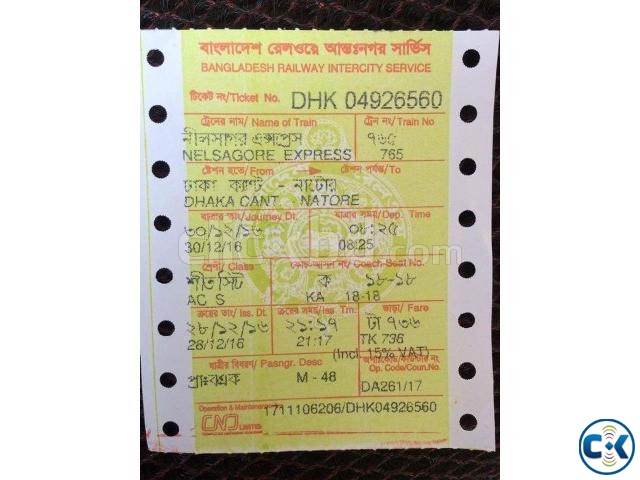 বাংলাদেশ রেলওয়ে আন্তঃনগর সার্ভিস
BANGLADESH RAILWAY INTERCITY SERVICE
টিকেট নং/Ticket No. DHK 04926560
ট্রেনের নাম/ Name of Train ট্রেন নং/ Train No
নীলসাগর এক্সপ্রেস ৭৬৫
NELSAGORE EXPRESS 765
ষ্টেশন হতে/ From ষ্টেশন পর্যন্ত/To
ঢাকা ক্যান্ট - নাটোর
DHAKA CANT NATORE
যাত্রার তাং/Journey Dt. যাত্রার সময়/Dep. Time
৩০/১২/১৬ ০৮:২৫
30/12/16 08:25
শ্রেণী/ Class কোচ-আসন নং/ Coach-Seat No.
শীত সিট ক ১৮-১৮
AC S KA 18-18
ক্রয়ের তাং/ Iss. Dt. ক্রয়ের সময়/Iss. Tm. ভাড়া/ Fare
২৮/১২/১৬ ২১:১৭ টা ৭৩৬
28/12/16 21:17 TK 736
(Incl. 15% VAT)
যাত্রীর বিবরণ/ Pasngr. Desc Op. Code/Coun.No.
প্রাঃবয়স্ক M - 48 DA261/17
Operation & Maintenance
1711106206/DHK04926560
CNS LIMITED